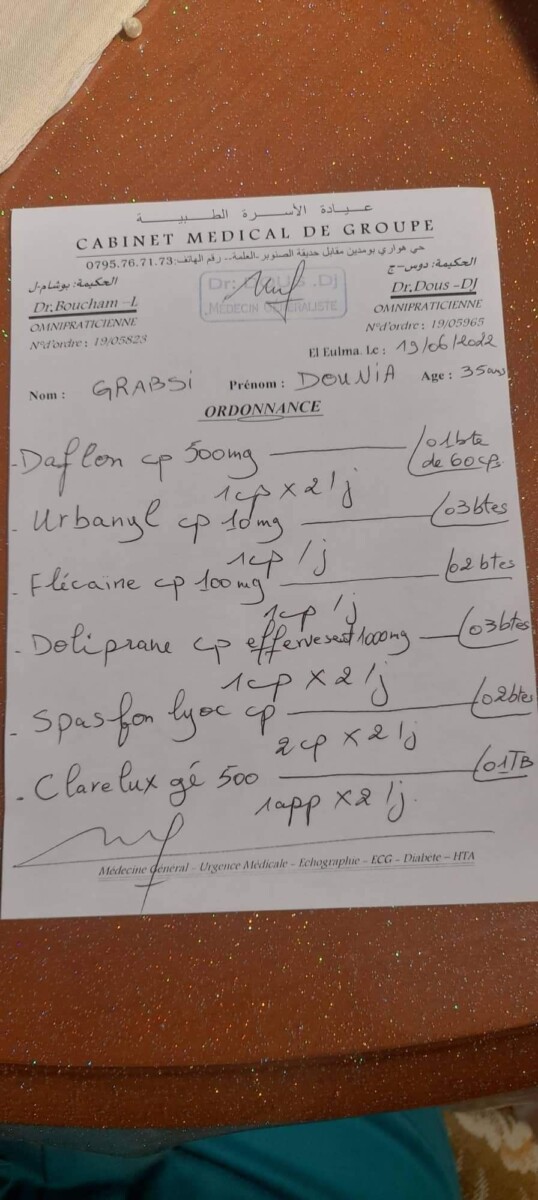 عيادة الأسرة الطبية
CABINET MEDICAL DE GROUPE
حي هواري بومدين مقابل حديقة الصنوبر-العلمة.. رقم الهاتف:0795.76.71.73
الحكيمة: بوشام-ل
Dr.Boucham -L
OMNIPRATICIENNE
N°d'ordre : 19/05823
Dr: DOUS .DJ
MÉDECIN GÉNÉRALISTE
الحكيمة: دوس-ج
Dr.Dous -DJ
OMNIPRATICIENNE
N°d'ordre : 19/05965
El Eulma. Le : 19/06/2022
Nom : GRABSI Prénom : DOUNIA Age : 35ans
ORDONNANCE
- Daflon cp 500mg 01bte de 60cps
1cp x 2 /j
- Urbanyl cp 10mg 03btes
1cp /j
- Flécaine cp 100mg 02btes
1cp /j
- Doliprane cp effervesent 1000mg 03btes
1cp x 2 /j
- Spasfon lyoc cp 02btes
2cp x 2 /j
- Clarelux gé 500 01TB
1app x 2 /j.
Médecine Général - Urgence Médicale - Echographie - ECG - Diabète - HTA